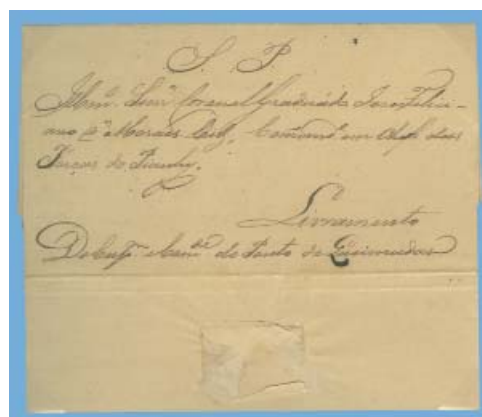 S. P.
Illmo. Senr. Coronel Graduado Jose Felici-
ano de Moraes Cid, Comande. em Chefe das
Forças do Piauhy.
Livramento
Do Cap. e Come. do Ponto de Queimadas